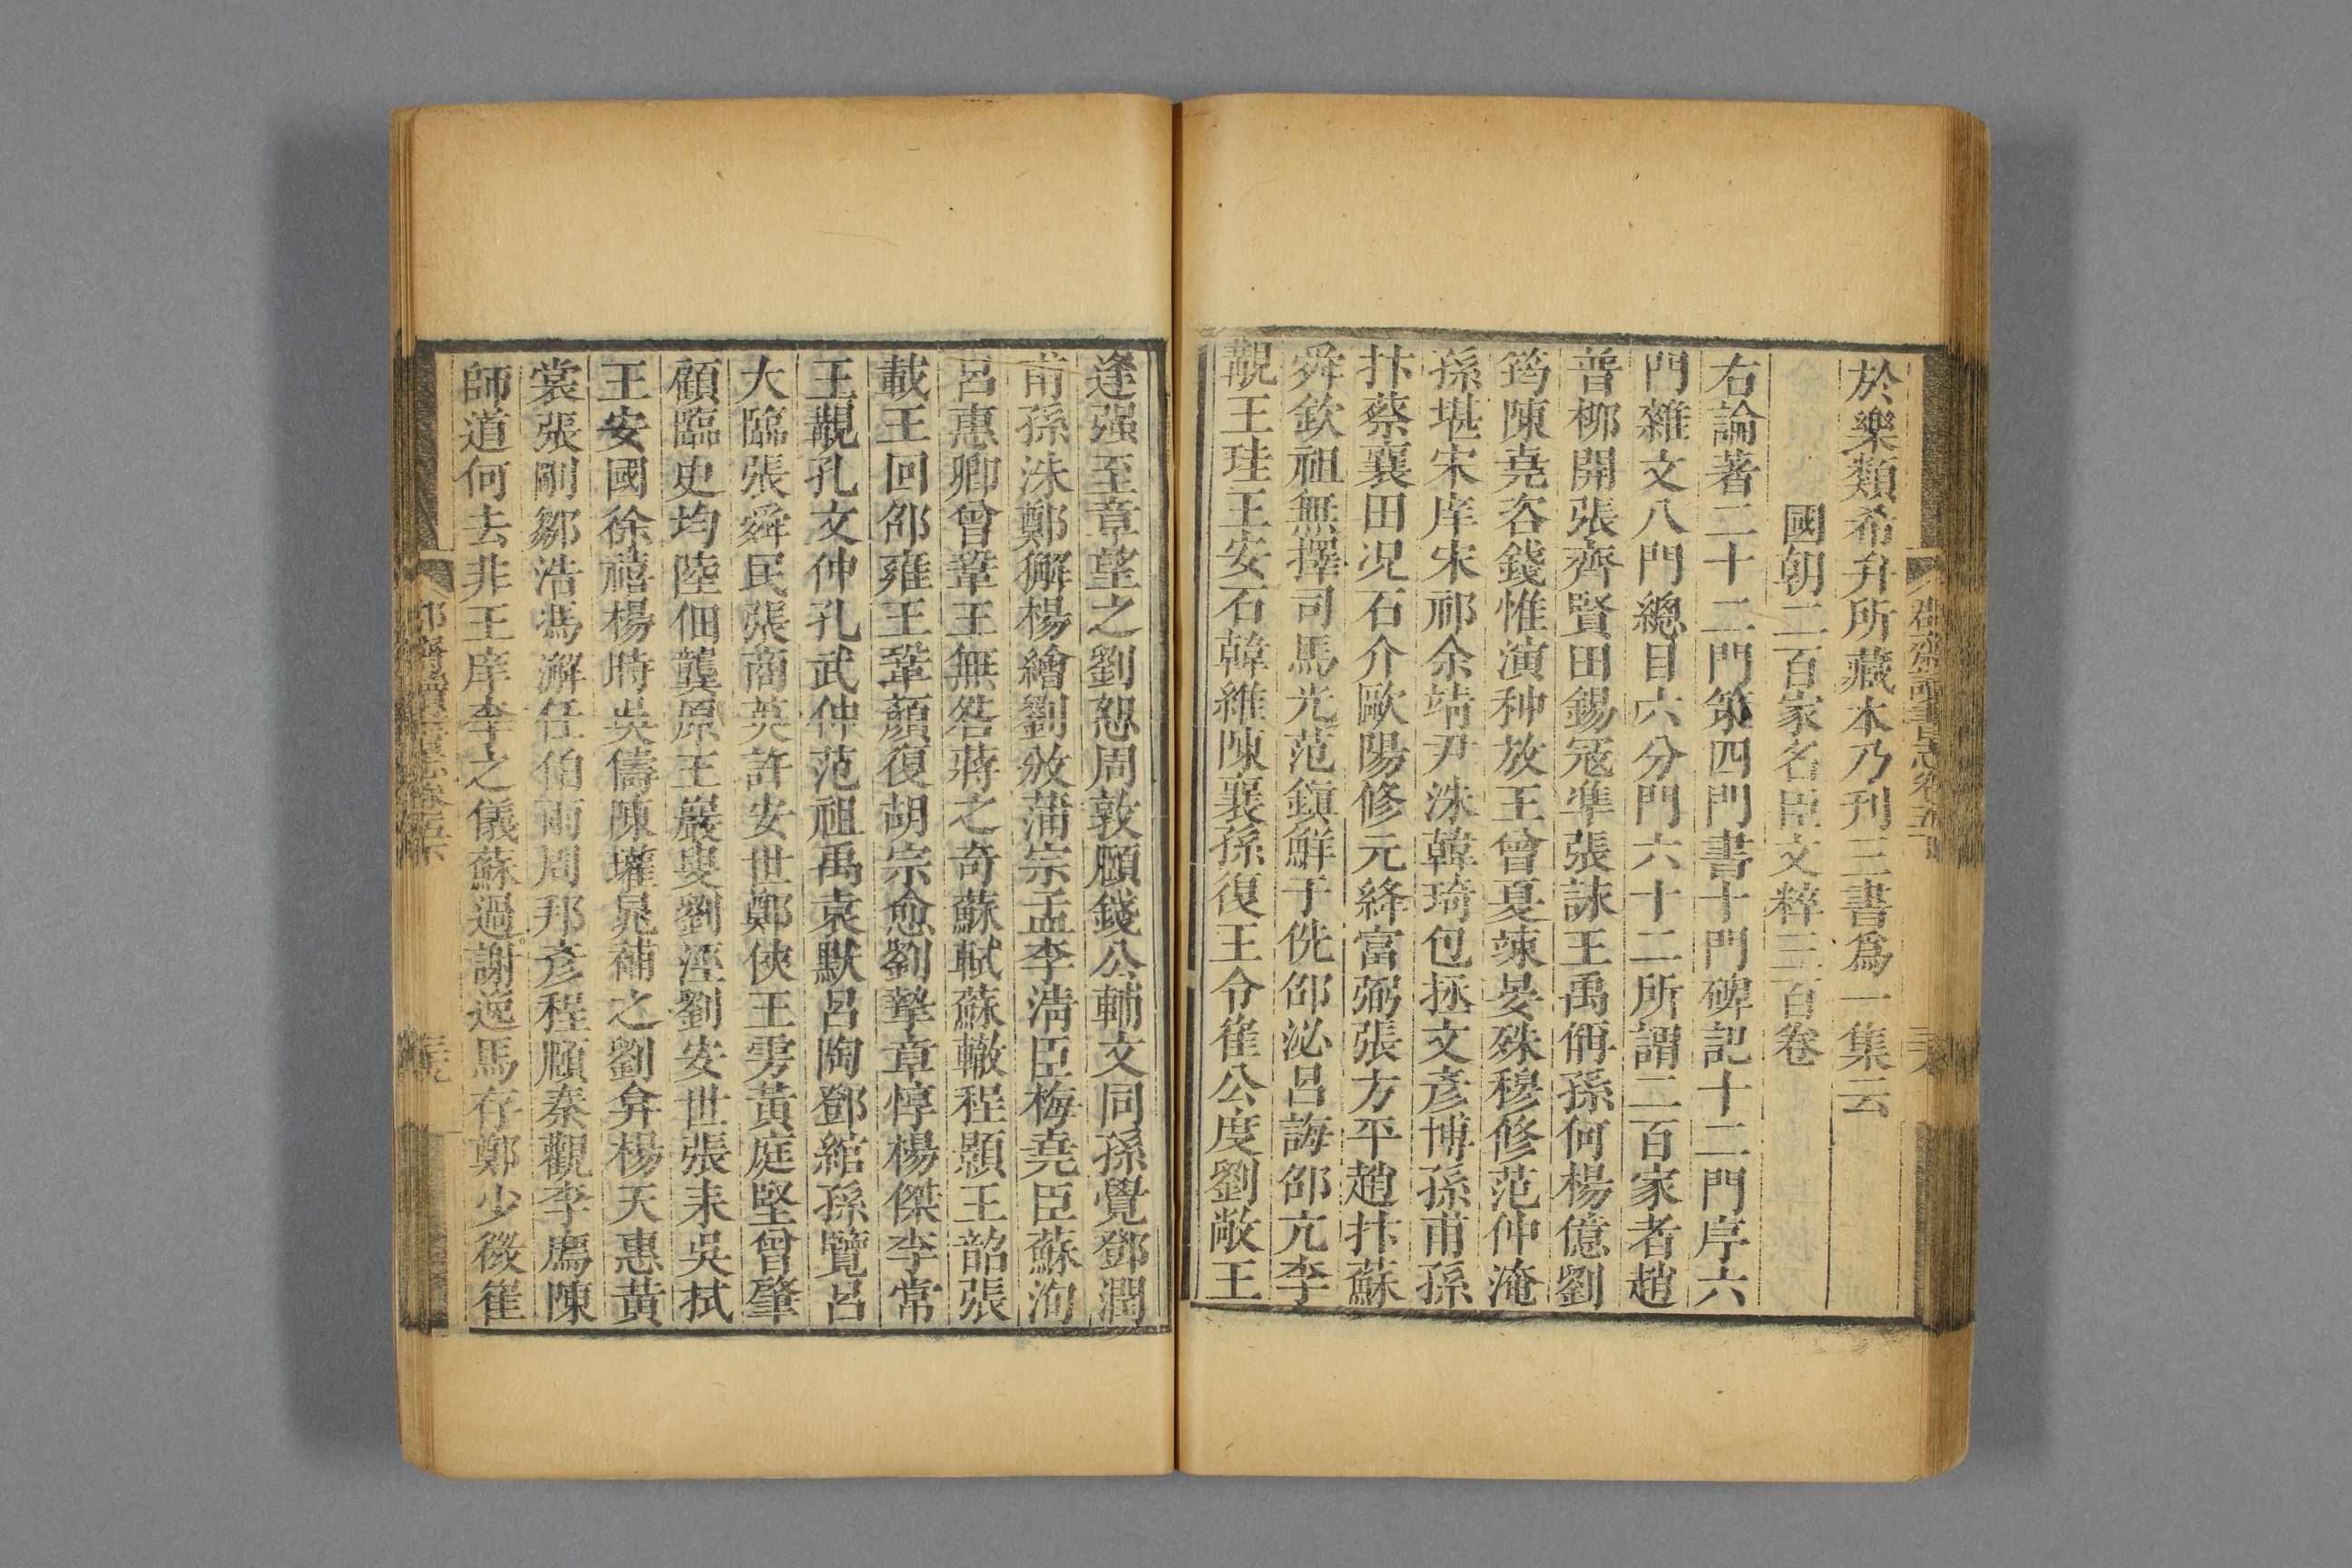 於樂類希弁所藏本乃刊三書爲一集云
國朝二百家名臣文粹三百卷
右論著二十二門策四門書十門碑記十二門序六
門雜文八門總目六分門六十二所謂二百家者趙
普柳開張齊賢田錫冦準張詠王禹偁孫何楊億劉
筠陳堯咨錢惟演种放王曾夏竦晏殊穆修范仲淹
孫堪宋庠宋祁余靖尹洙韓琦包拯文彥博孫甫孫
抃蔡襄田况石介歐陽修元絳富弼張方平趙抃蘇
舜欽祖無擇司馬光范鎮鮮于侁邵泌呂誨邵亢李
覯王珪王安石韓維陳襄孫復王令崔公度劉敞王
逢强至章望之劉恕周敦頤錢公輔文同孫覺鄧潤
甫孫洙鄭獬楊繪劉攽蒲宗孟李清臣梅堯臣蘇洵
呂惠卿曾鞏王無咎蔣之奇蘇軾蘇轍程顥王韶張
載王回邵雍王鞏顏復胡宗愈劉摯章惇楊傑李常
王覿孔文仲孔武仲范祖禹袁默呂陶鄧綰孫覽呂
大臨張舜民張商英許安世鄭俠王雱黃庭堅曾肇
顧臨史均陸佃龔原王巖叟劉涇劉安世張耒吳拭
王安國徐禧楊時吳儔陳瓘晁補之劉弇楊天惠黃
裳張剛鄒浩馮澥任伯雨周邦彥程頤秦觀李廌陳
師道何去非王庠李之儀蘇過謝逸馬存鄭少微崔